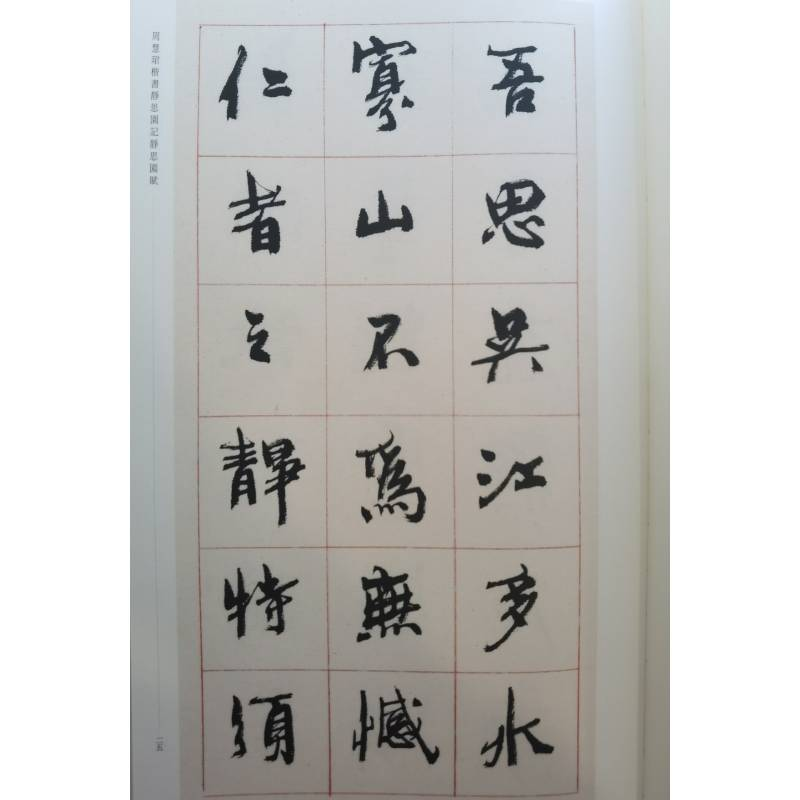 吾思吳江多水
寡山不為無憾
仁者之靜特須
周慧珺楷書靜思園記靜思園賦
二五